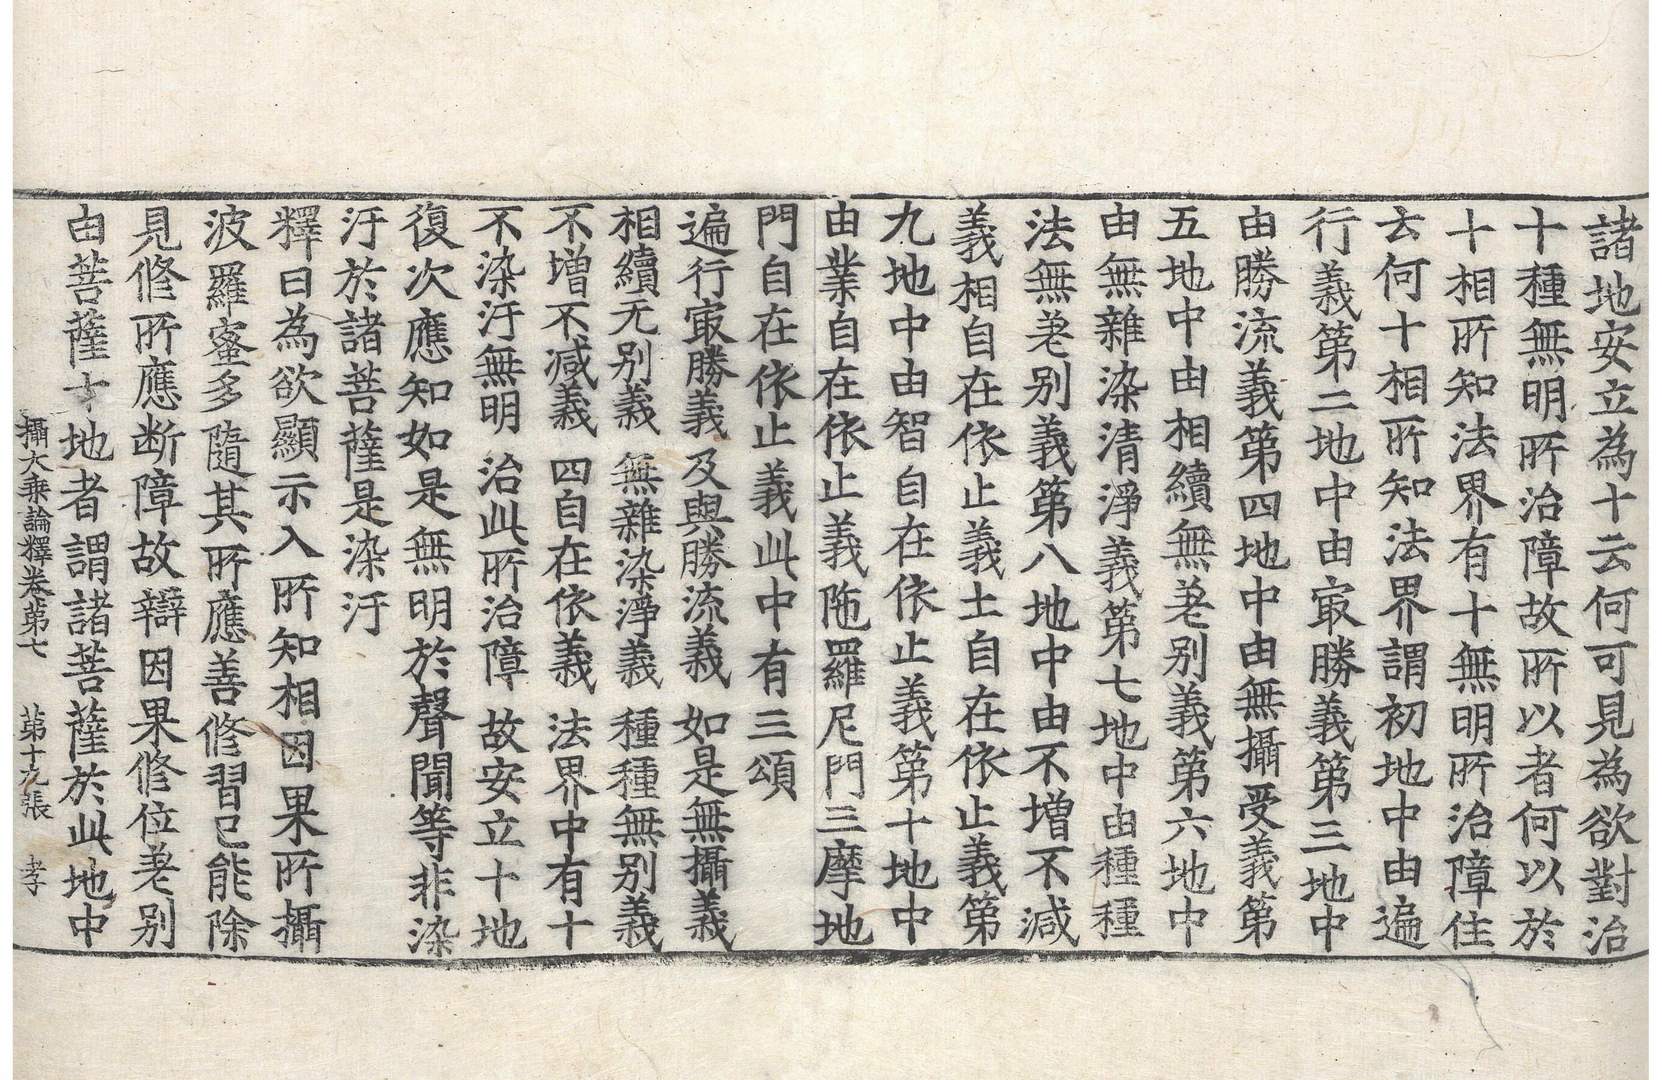 諸地安立為十云何可見為欲對治
十種無明所治障故所以者何以於
十相所知法界有十無明所治障住
云何十相所知法界謂初地中由遍
行義第二地中由㝡勝義第三地中
由勝流義第四地中由無攝受義第
五地中由相續無差别義第六地中
由無雜染清淨義第七地中由種種
法無差别義第八地中由不增不減
義相自在依止義土自在依止義第
九地中由智自在依止義第十地中
由業自在依止義陁羅尼門三摩地
門自在依止義此中有三頌
遍行㝡勝義 及與勝流義 如是無攝義
相續无别義 無雜染淨義 種種無别義
不增不減義 四自在依義 法界中有十
不染汙無明 治此所治障 故安立十地
復次應知如是無明於聲聞等非染
汙於諸菩薩是染汙
釋曰為欲顯示入所知相因果所攝
波羅蜜多隨其所應善修習已能除
見修所應断障故辯因果修位差别
由菩薩十地者謂諸菩薩於此地中
攝大乘論釋卷苐七 苐十九張 孝